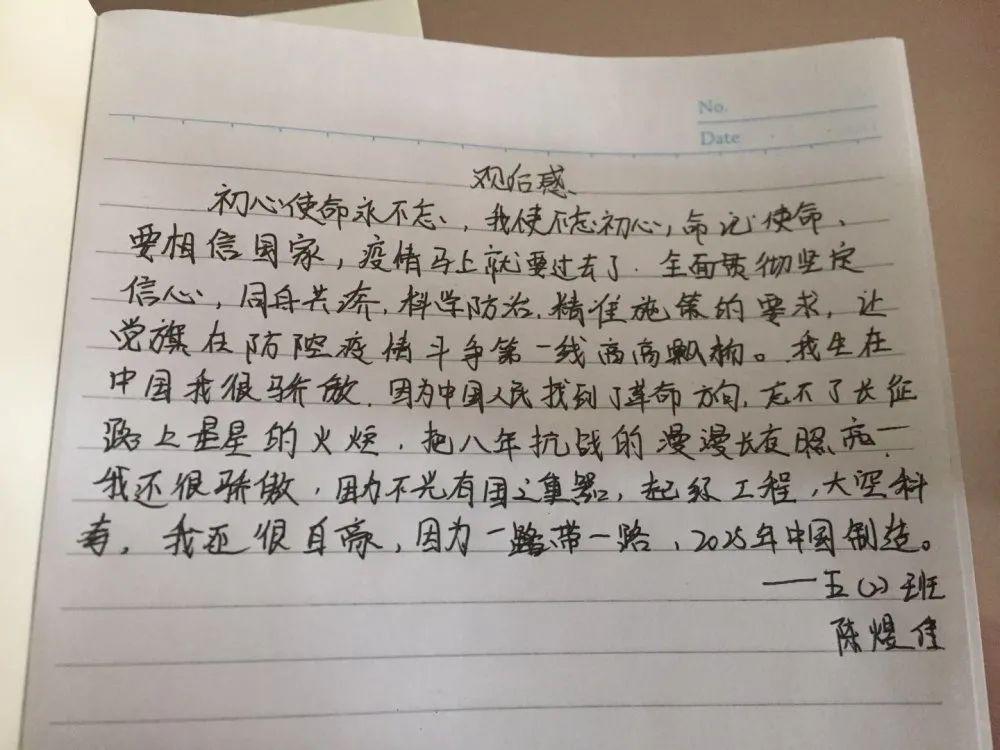 No.
Date
观后感
初心使命永不忘、我使不忘初心,命记使命、
要相信国家,疫情马上就要过去了.全面贯彻坚定
信心,同舟共济,科学防治,精准施策的要求,让
党旗在防控疫情斗争第一线高高飘扬。我生在
中国我很骄傲,因为中国人民找到了革命方向,忘不了长征
路上星星的火炬,把八年抗战的漫漫长夜照亮一
我还很骄傲,因为不光有国之重器,超级工程,大空科
考,我还很自豪,因为一路带一路、2025年中国制造。
——五(2)班
陈煜佳